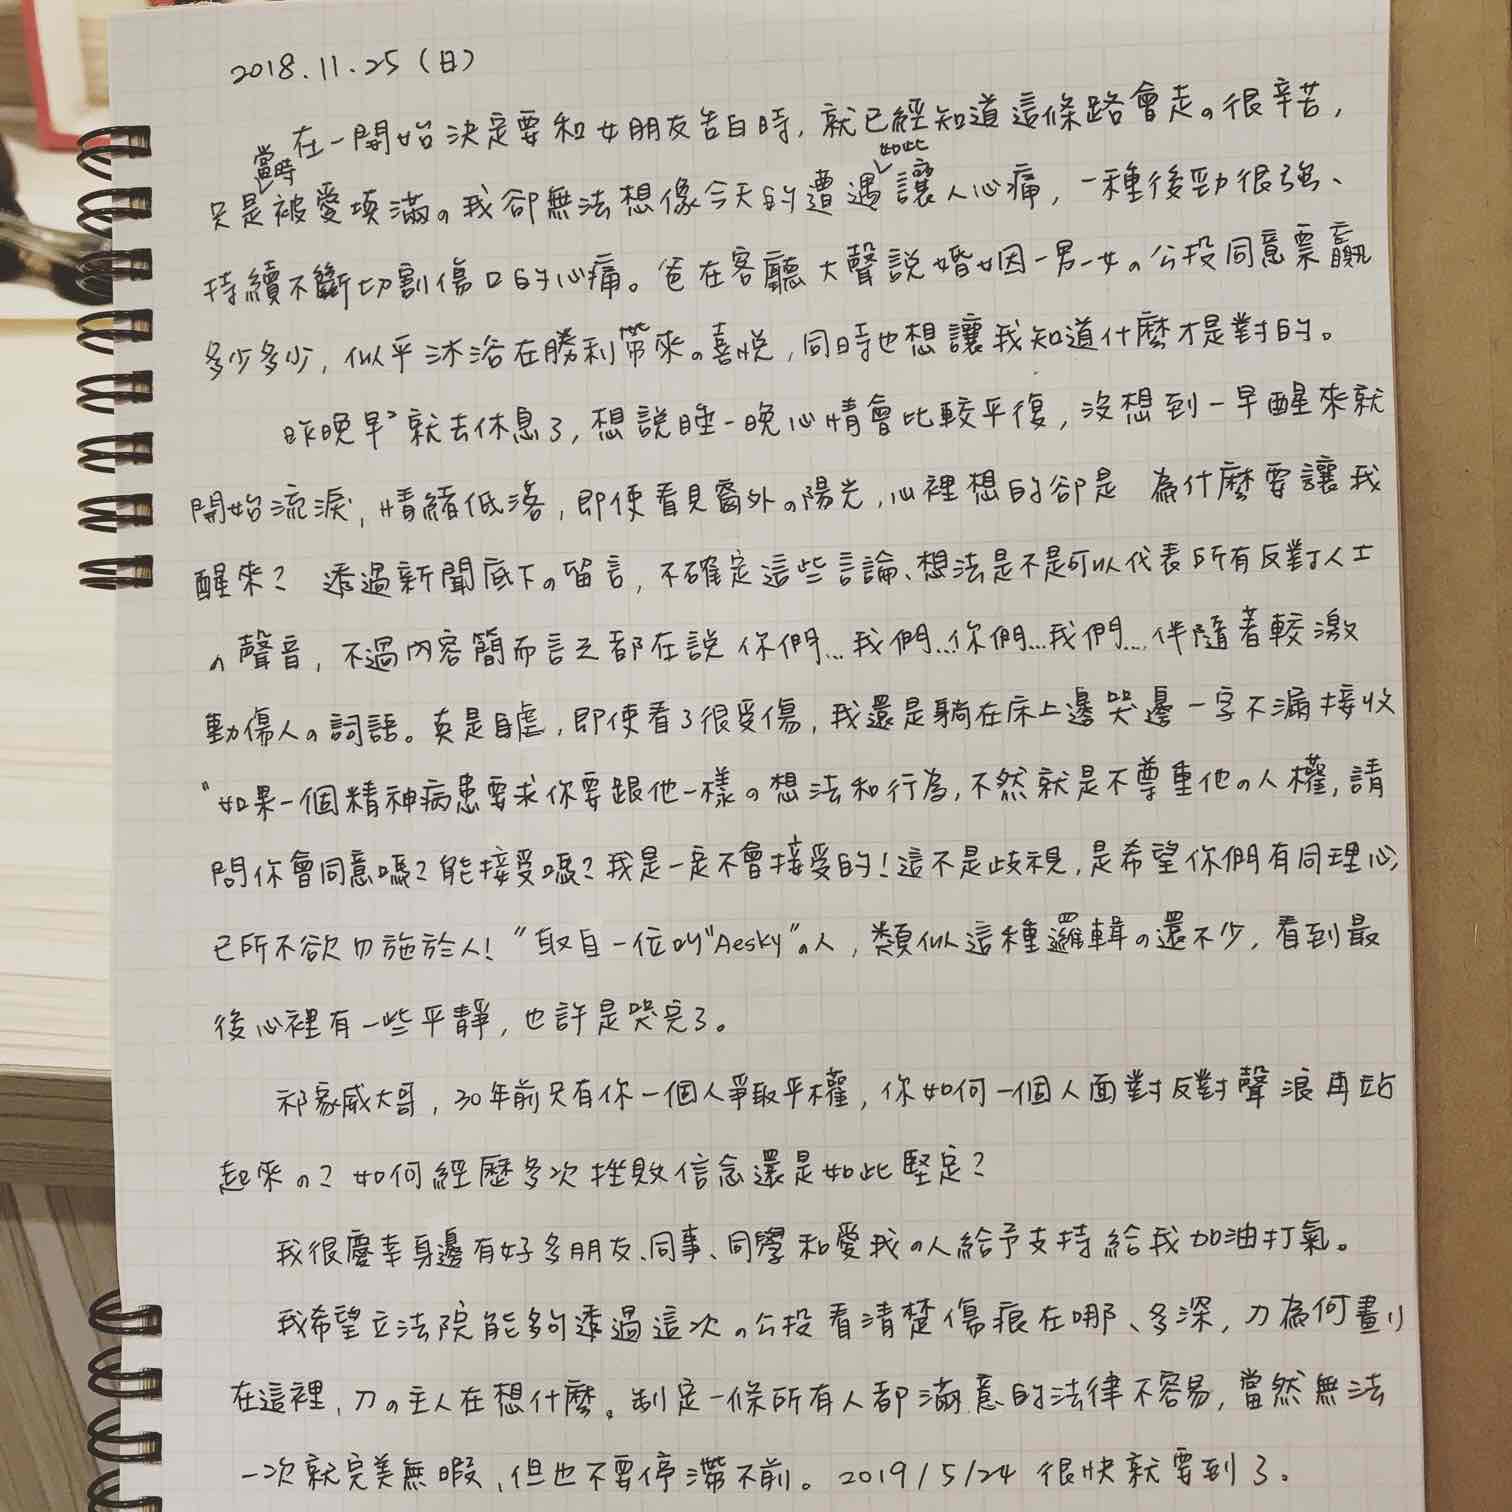 2018.11.25（日）
在一開始決定要和女朋友告白時，就已經知道這條路會走の很辛苦，
只是當時被愛填滿の我卻無法想像今天的遭遇如此讓人心痛，一種後勁很強、
持續不斷切割傷口的心痛。爸在客廳大聲說婚姻一男一女の公投同意票贏
多少多少，似乎沐浴在勝利帶來の喜悅，同時也想讓我知道什麼才是對的。
昨晚早早就去休息了，想說睡一晚心情會比較平復，沒想到一早醒來就
開始流淚，情緒低落，即使看見窗外の陽光，心裡想的卻是 為什麼要讓我
醒來？ 透過新聞底下の留言，不確定這些言論、想法是不是可以代表所有反對人士
の聲音，不過內容簡而言之都在說 你們...我們...你們...我們...，伴隨著較激
動傷人の詞語。真是自虐，即使看了很受傷，我還是躺在床上邊哭邊一字不漏接收
“如果一個精神病患要求你要跟他一樣の想法和行為，不然就是不尊重他の人權，請
問你會同意嗎？能接受嗎？我是一定不會接受的！這不是歧視，是希望你們有同理心，
己所不欲勿施於人！”取自一位叫“Aesky”の人，類似這種邏輯の還不少，看到最
後心裡有一些平靜，也許是哭完了。
祁家威大哥，30年前只有你一個人爭取平權，你如何一個人面對反對聲浪再站
起來の？如何經歷多次挫敗信念還是如此堅定？
我很慶幸身邊有好多朋友、同事、同學和愛我の人給予支持給我加油打氣。
我希望立法院能夠透過這次の公投看清楚傷痕在哪、多深，刀為何劃
在這裡，刀の主人在想什麼。制定一條所有人都滿意的法律不容易，當然無法
一次就完美無暇，但也不要停滯不前。2019/5/24 很快就要到了。